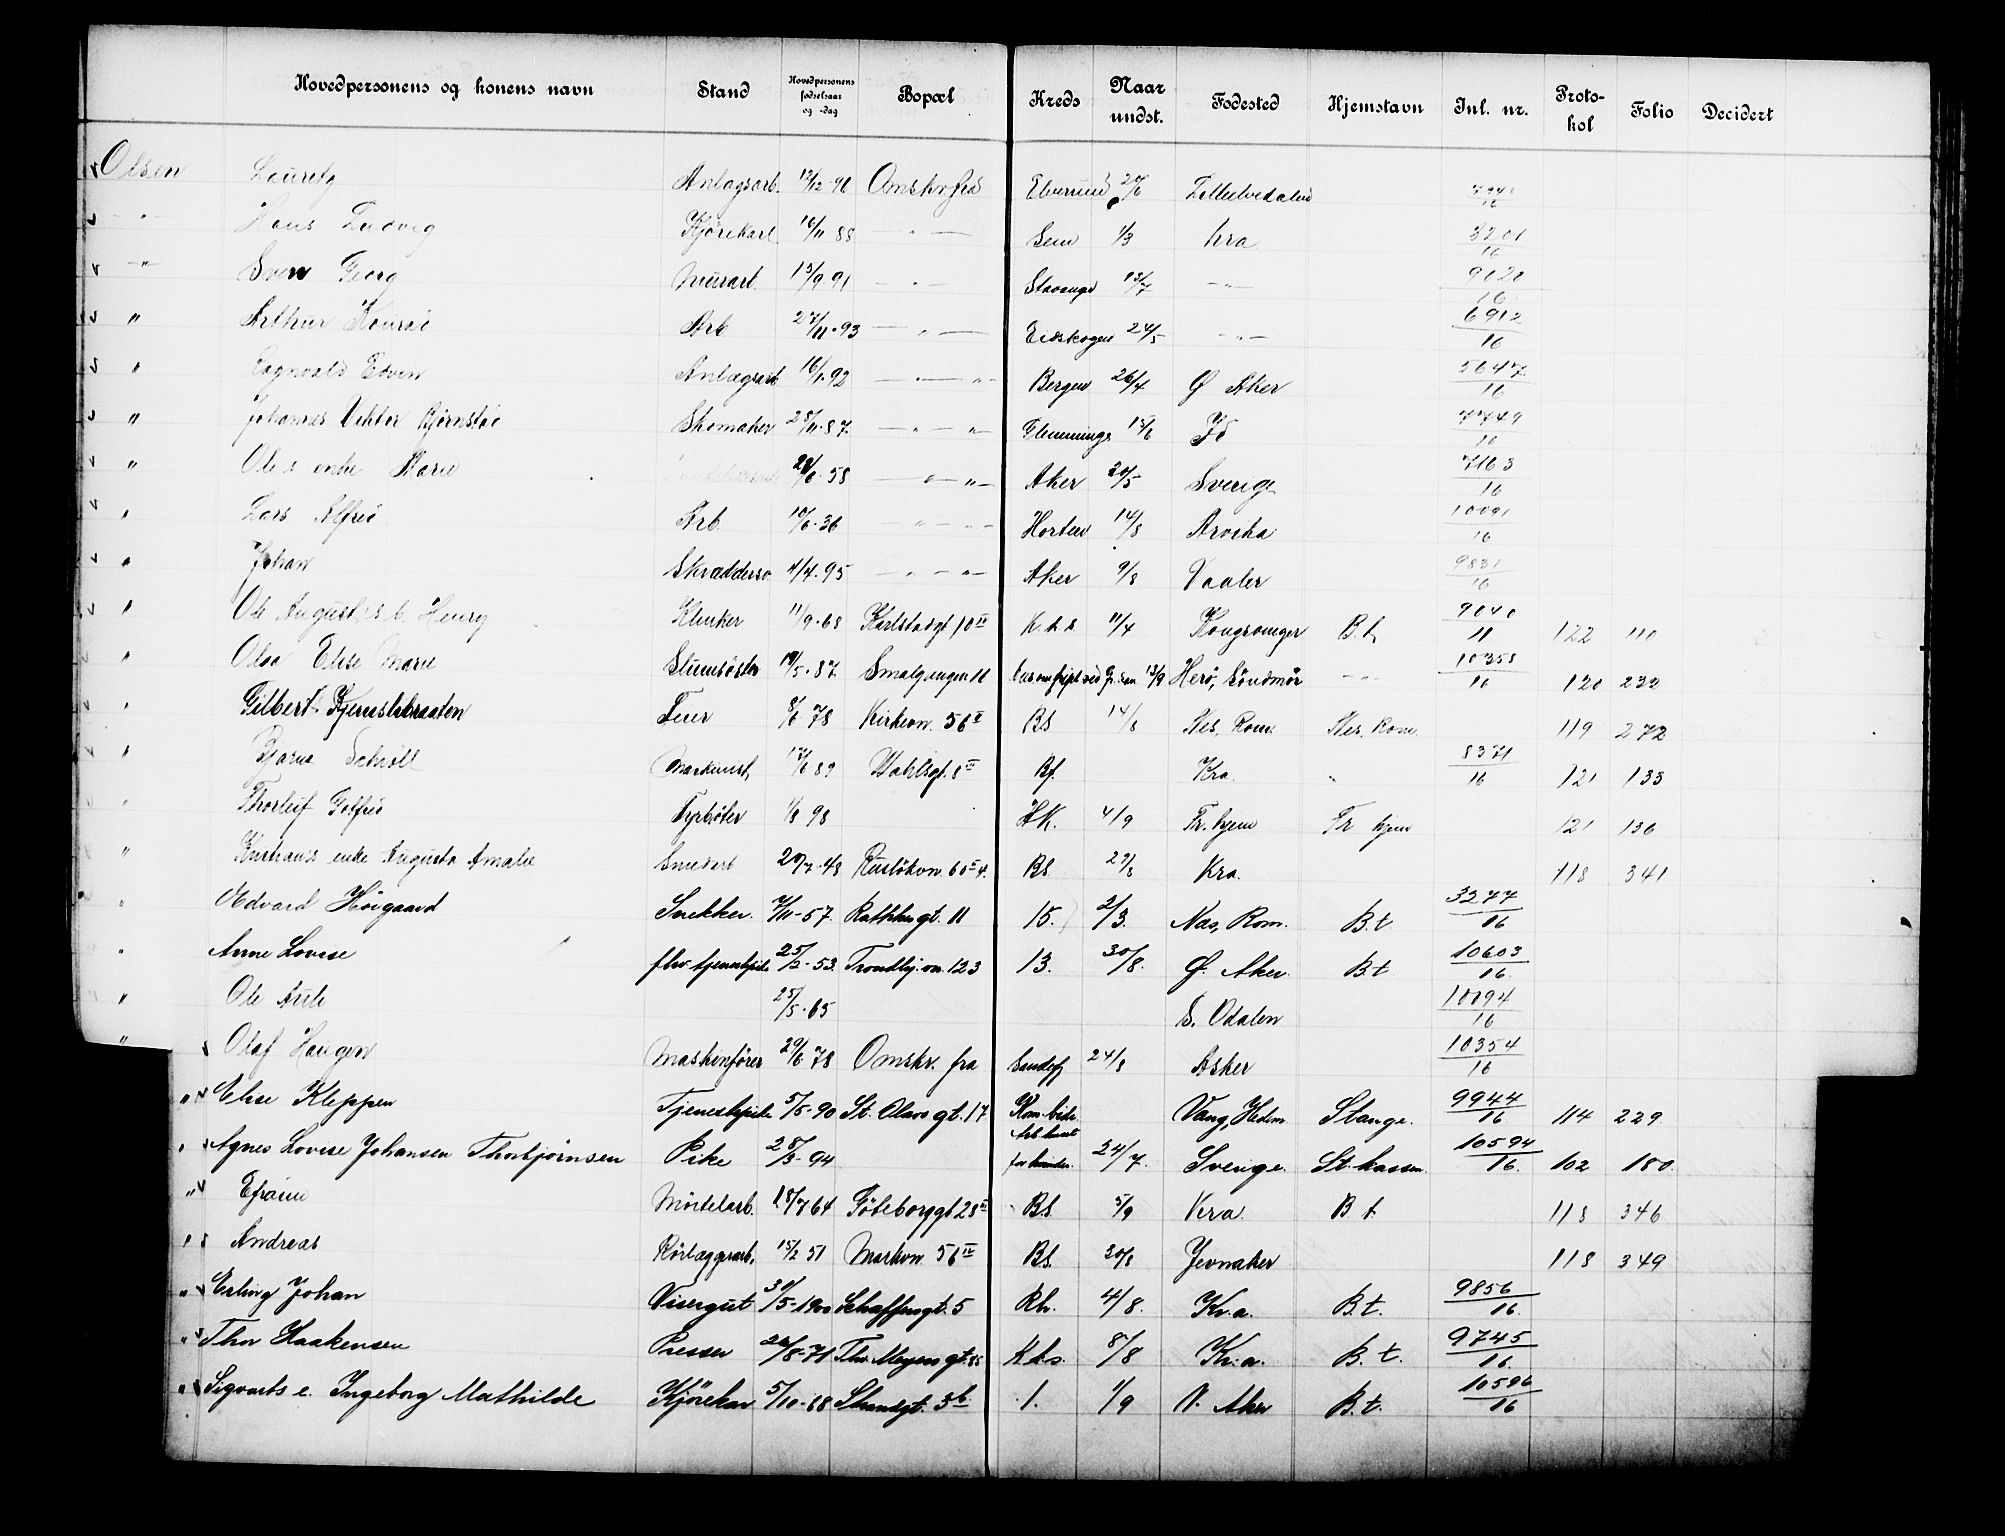 Hovedpersonens og konens navn Stand Hovedpersonens fødselsaar og -dag Bopæl Kreds Naar undst. Fødested Hjemstavn Inl. nr. Proto-kol Folio Decidert
Olsen Lauritz Anlagsarb. Omskr fra Elverum
" Hans Ludvig Kjørekarl 16/11 88 — " — Sem 1/3 Kra 3201/16
" Georg Murarb. 15/9 91 — " — Stavanger 13/7 — " — 9020/16
" Arthur Konrad Arb 27/11-93 — " — Eidskogen 24/5 — " — 6912/16
" Ragnvald Edvin Anlægsarb 16/1-92 — " — " Bergen 26/4 Ø Aker 5647/16
" Johannes Viktor Bjørnstad Skomaker 28/11-87 — " — " Glemminge 15/6 Id 7749/16
" Ole s enke Marie 58 — " — " Aker 20/5 Sverige 7163/16
" Lars Alfred Arb. 10/6-36 — " — " Horten 14/8 Arvika
" Johan Skrædersv. 4/4-95 — " — " Aker 9/8 Vaaler 9831/16
" Ole August, s. b. Henry Klinker 11/9-68 Karlstadgt 10 IV K.h.s 11/4 Kongsvinger B.t. 9040/11 122 110
" Olga Elise Marie Stuesøster 19/5-87 Smalgangen 11 13/9 Herø, Søndmør — " — 10358/16 120 232
" Gilbert Kjernslibraaten Feier 8/6 78 Kirkevn. 56 II BS 14/8 Nes, Rom. Nes. Rom. 119 272
" Bjarne Schiøll Maskinist 17/6 89 Wahlsgt. 8 IV Bf. Kra. " 8371/16 121 133
" Thorleif Gotfred Fyrbøter 1/8 98 HK. 4/9 Tr. hjem Tr hjem 121 136
" enke Augusta Amalie Smedarb 29/7-48 Ruseløkvn 60 II 4. BS 29/8 Kra. 118 341
" Edvard Høigaard Snekker. 7/11-57. Rathkesgt. 11 15. 2/3. Nes, Rom. B.t. 3277/16
" Anne Lovise fhv. tjenestepike 25/2-53. Trondhj. vn. 123 13. 30/8. Ø. Aker. B.t 10603/16
" Ole 25/5-65 S. Odalen 10094/16
" Olaf Haugen Maskinfører 29/6 78 Omskr. fra Sandefj 24/8 Asker 10354/16
" Elise Kleppen Tjenestepike 5/5-90 St. Olavs gt. 17 Vang, Hedm Stange. 9944/16 114 229
" Agnes Lovise Johansen Thorbjørnsen Pike 28/3-94 for kvinder. 24/7. Sverige. St. kassen. 10594/16. 102 180
" Efraim Mørtelarb. 18/7 64 Göteborggt 28 III BS. 5/9 Kra. B t. 118 346
" Andreas Rørlæggerarb. 15/2 51 Markvn. 56 IV BS. 30/8 Jevnaker 118 349
" Erling Johan Visergut 30/5-1900 Schaffersgt. 5 Rh. 4/8. Kr.a. B.t. 9856/16.
" Thor Haakensen Presser 26/8-71 Th. Meyers gt. 85 K.h.s. 8/8 Kr.a. B.t. 9745/16.
" Sigvarts e. Ingeborg Mathilde Kjørekar 5/10-68 Strandgt. 3 b. 1. 1/9 V. Aker B.t. 10596/16